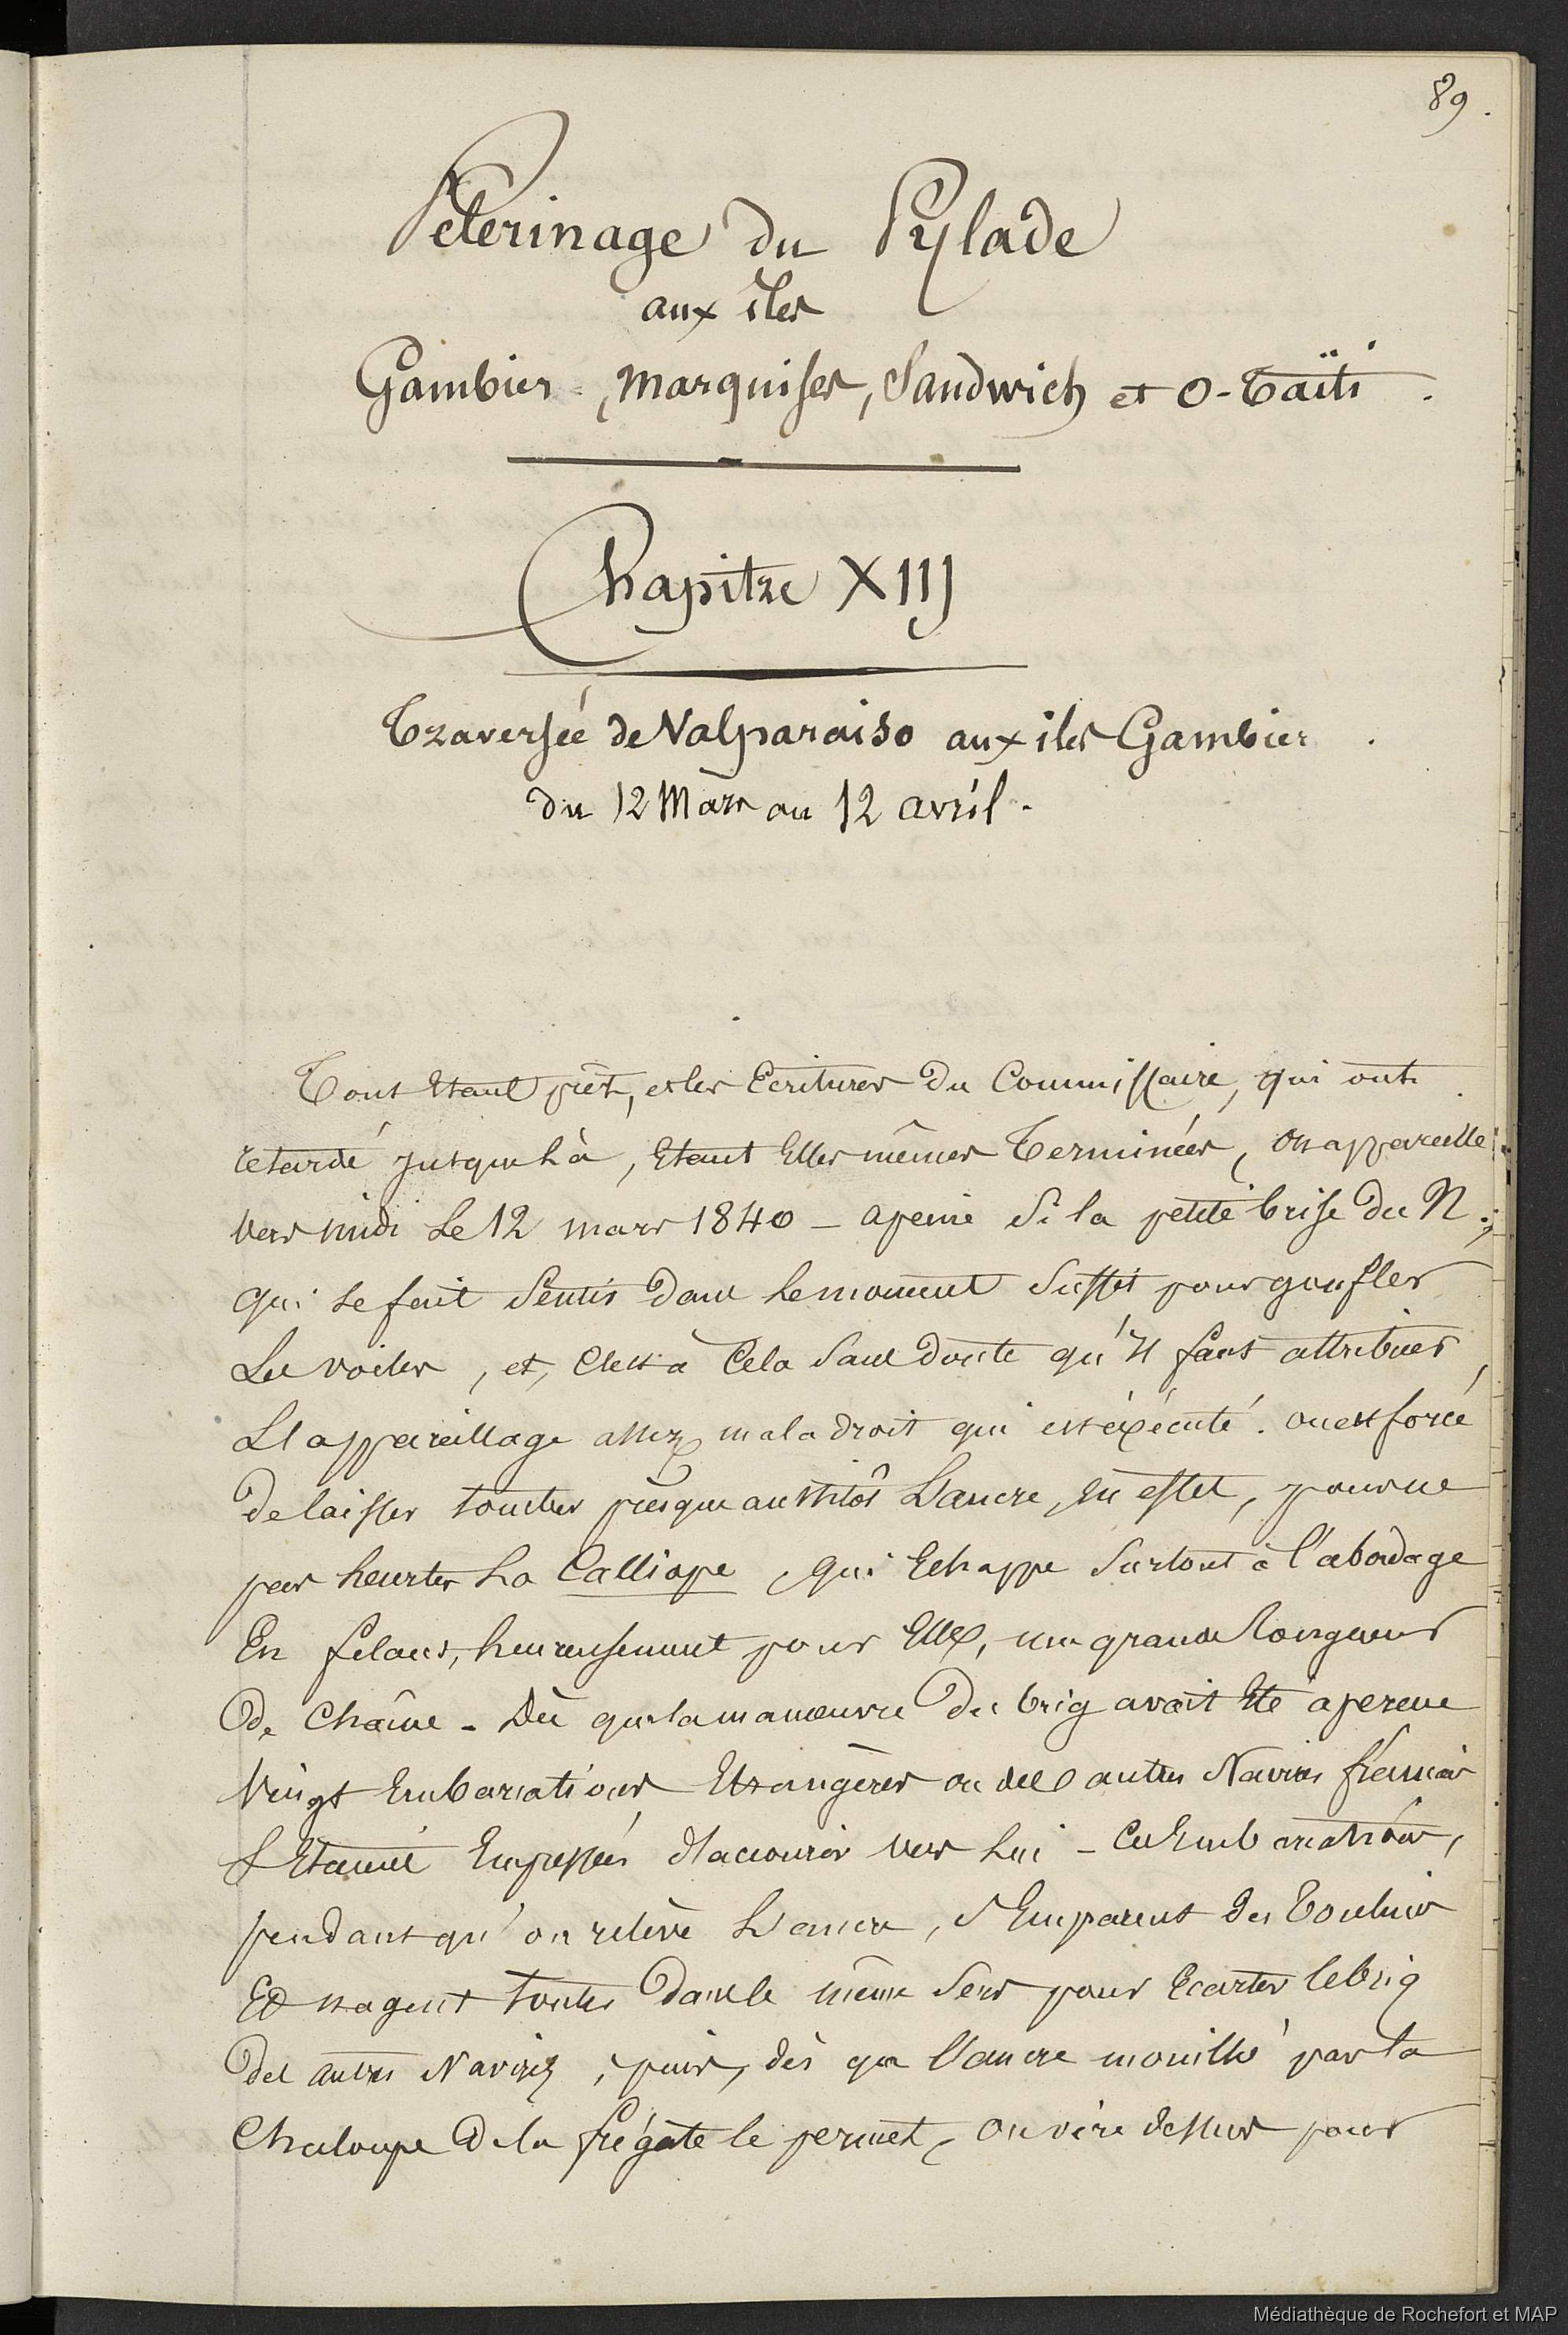 89.
Pélerinage du Pylade
aux îles
Gambier, marquises, Sandwich et O-Taïti.
Chapitre XIIJ
Traversée de Valparaiso aux iles Gambier.
du 12 Mars au 12 avril.
Tout Etant prêt, et les Ecritures du Commissaire, qui ont
retardé jusque là, Etant Elles mêmes Terminées, on appareille
vers midi le 12 mars 1840 - apeine si la petite brise du N.,
qui se fait Sentir dans le moment suffit pour gonfler
les voiles, et, c'est à Cela sans doute qu'il faut attribuer
L'appareillage assez maladroit qui est éxécuté. on est forcé
de laisser tomber presque aussitôt L'ancre, en effet, pour ne
pas heurter La Calliope, qui Echappe surtout à l'abordage
En filant, heureusement pour Elle, une grande longueur
de Chaîne - Dès que la manœuvre du brig avait Eté aperçue
Vingt Embarcations Etrangères ou des autres Navires français
S'Etaient Empressées d'accourir vers Lui - Ces Embarcations,
pendant qu'on relève L'ancre, s'Emparent des Toulines
Et nagent toutes dans le même Sens pour Ecarter le brig
des autres Navires, puis, dès que l'ancre mouillé par la
Chaloupe de la frégate le permet, on vire dessus pour
Médiathèque de Rochefort et MAP